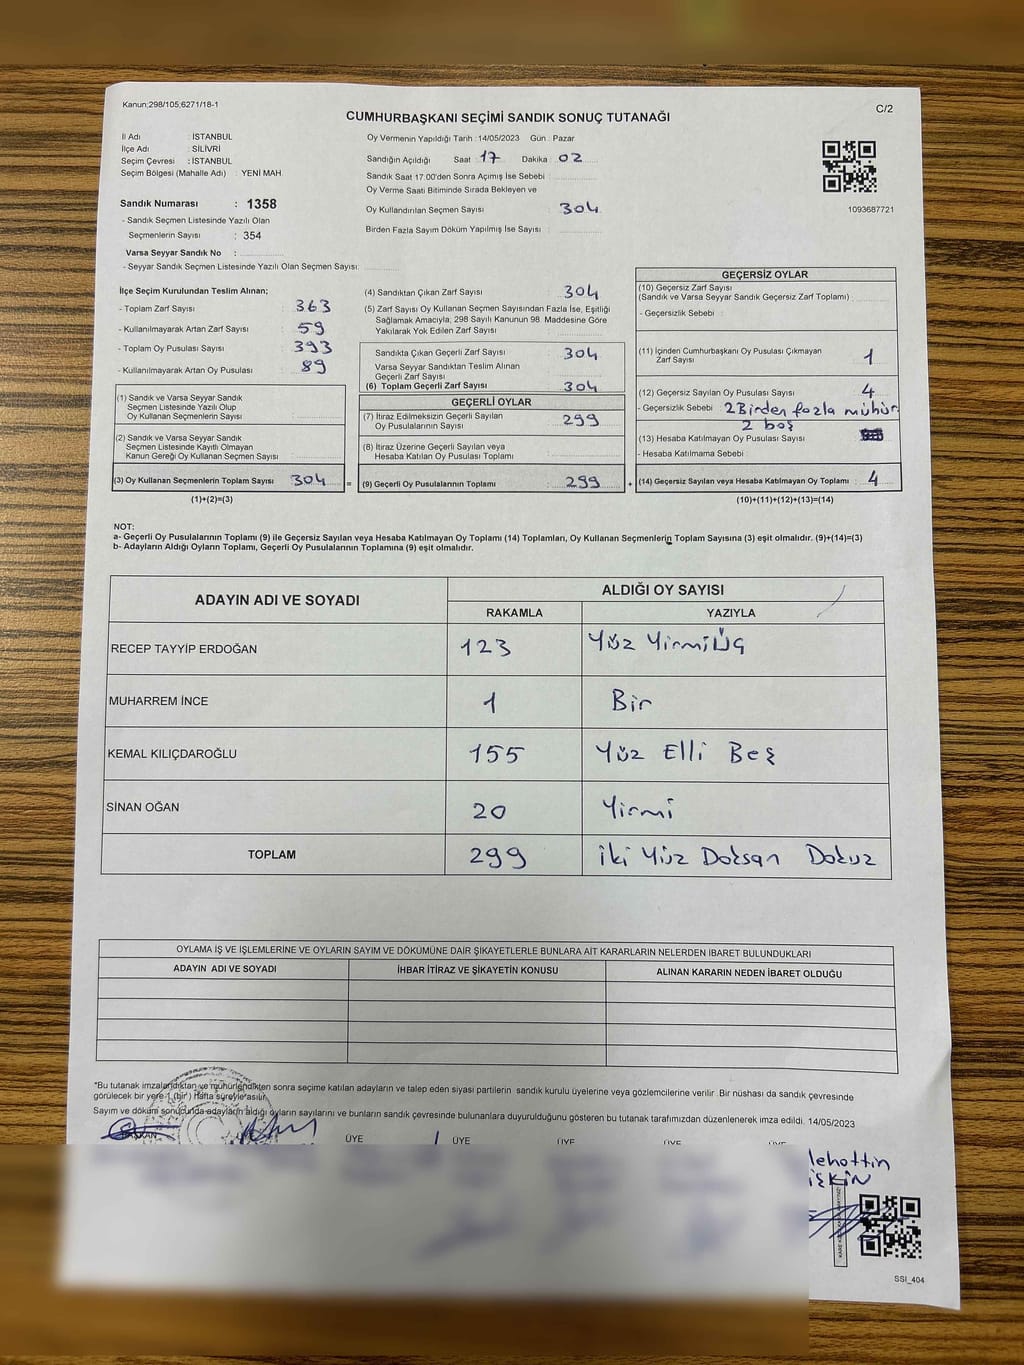 Kanun;298/105;6271/18-1
C/2
CUMHURBAŞKANI SEÇİMİ SANDIK SONUÇ TUTANAĞI
İl Adı : İSTANBUL
İlçe Adı : SİLİVRİ
Seçim Çevresi : İSTANBUL
Seçim Bölgesi (Mahalle Adı) : YENİ MAH.
Sandık Numarası : 1358
- Sandık Seçmen Listesinde Yazılı Olan
Seçmenlerin Sayısı : 354
Varsa Seyyar Sandık No :
- Seyyar Sandık Seçmen Listesinde Yazılı Olan Seçmen Sayısı:
Oy Vermenin Yapıldığı Tarih : 14/05/2023 Gün : Pazar
Sandığın Açıldığı Saat 17 Dakika : 02
Sandık Saat 17:00'den Sonra Açımış İse Sebebi :
Oy Verme Saati Bitiminde Sırada Bekleyen ve
Oy Kullandırılan Seçmen Sayısı : 304
Birden Fazla Sayım Döküm Yapılmış İse Sayısı :
1093687721
İlçe Seçim Kurulundan Teslim Alınan;
- Toplam Zarf Sayısı : 363
- Kullanılmayarak Artan Zarf Sayısı : 59
- Toplam Oy Pusulası Sayısı : 393
- Kullanılmayarak Artan Oy Pusulası : 89
(1) Sandık ve Varsa Seyyar Sandık
Seçmen Listesinde Yazılı Olup
Oy Kullanan Seçmenlerin Sayısı :
(2) Sandık ve Varsa Seyyar Sandık
Seçmen Listesinde Kayıtlı Olmayan
Kanun Gereği Oy Kullanan Seçmen Sayısı :
(3) Oy Kullanan Seçmenlerin Toplam Sayısı : 304 =
(1)+(2)=(3)
(4) Sandıktan Çıkan Zarf Sayısı : 304
(5) Zarf Sayısı Oy Kullanan Seçmen Sayısından Fazla İse, Eşitliği
Sağlamak Amacıyla; 298 Sayılı Kanunun 98. Maddesine Göre
Yakılarak Yok Edilen Zarf Sayısı :
Sandıkta Çıkan Geçerli Zarf Sayısı : 304
Varsa Seyyar Sandıktan Teslim Alınan
Geçerli Zarf Sayısı :
(6) Toplam Geçerli Zarf Sayısı : 304
GEÇERLİ OYLAR
(7) İtiraz Edilmeksizin Geçerli Sayılan
Oy Pusulalarının Sayısı : 299
(8) İtiraz Üzerine Geçerli Sayılan veya
Hesaba Katılan Oy Pusulası Toplamı :
(9) Geçerli Oy Pusulalarının Toplamı : 299 +
GEÇERSİZ OYLAR
(10) Geçersiz Zarf Sayısı
(Sandık ve Varsa Seyyar Sandık Geçersiz Zarf Toplamı) :
- Geçersizlik Sebebi :
(11) İçinden Cumhurbaşkanı Oy Pusulası Çıkmayan
Zarf Sayısı : 1
(12) Geçersiz Sayılan Oy Pusulası Sayısı : 4
- Geçersizlik Sebebi : 2 Birden fazla mühür
2 boş
(13) Hesaba Katılmayan Oy Pusulası Sayısı :
- Hesaba Katılmama Sebebi :
(14) Geçersiz Sayılan veya Hesaba Katılmayan Oy Toplamı : 4
(10)+(11)+(12)+(13)=(14)
NOT:
a- Geçerli Oy Pusulalarının Toplamı (9) ile Geçersiz Sayılan veya Hesaba Katılmayan Oy Toplamı (14) Toplamları, Oy Kullanan Seçmenlerin Toplam Sayısına (3) eşit olmalıdır. (9)+(14)=(3)
b- Adayların Aldığı Oyların Toplamı, Geçerli Oy Pusulalarının Toplamına (9) eşit olmalıdır.
ADAYIN ADI VE SOYADI
ALDIĞI OY SAYISI
RAKAMLA YAZIYLA
RECEP TAYYİP ERDOĞAN 123 Yüz Yirmi Üç
MUHARREM İNCE 1 Bir
KEMAL KILIÇDAROĞLU 155 Yüz Elli Beş
SİNAN OĞAN 20 Yirmi
TOPLAM 299 İki Yüz Doksan Dokuz
OYLAMA İŞ VE İŞLEMLERİNE VE OYLARIN SAYIM VE DÖKÜMÜNE DAİR ŞİKAYETLERLE BUNLARA AİT KARARLARIN NELERDEN İBARET BULUNDUKLARI
ADAYIN ADI VE SOYADI İHBAR İTİRAZ VE ŞİKAYETİN KONUSU ALINAN KARARIN NEDEN İBARET OLDUĞU
"Bu tutanak imzalandıktan ve mühürlendikten sonra seçime katılan adayların ve talep eden siyasi partilerin sandık kurulu üyelerine veya gözlemcilerine verilir .Bir nüshası da sandık çevresinde
görülecek bir yere 1 (bir ) Hafta süreyle asılır.
Sayım ve döküm sonucunda adayların aldığı oyların sayılarını ve bunların sandık çevresinde bulunanlara duyurulduğunu gösteren bu tutanak tarafımızdan düzenlenerek imza edildi. 14/05/2023
BAŞKAN ÜYE ÜYE ÜYE ÜYE ÜYE
SSI_404